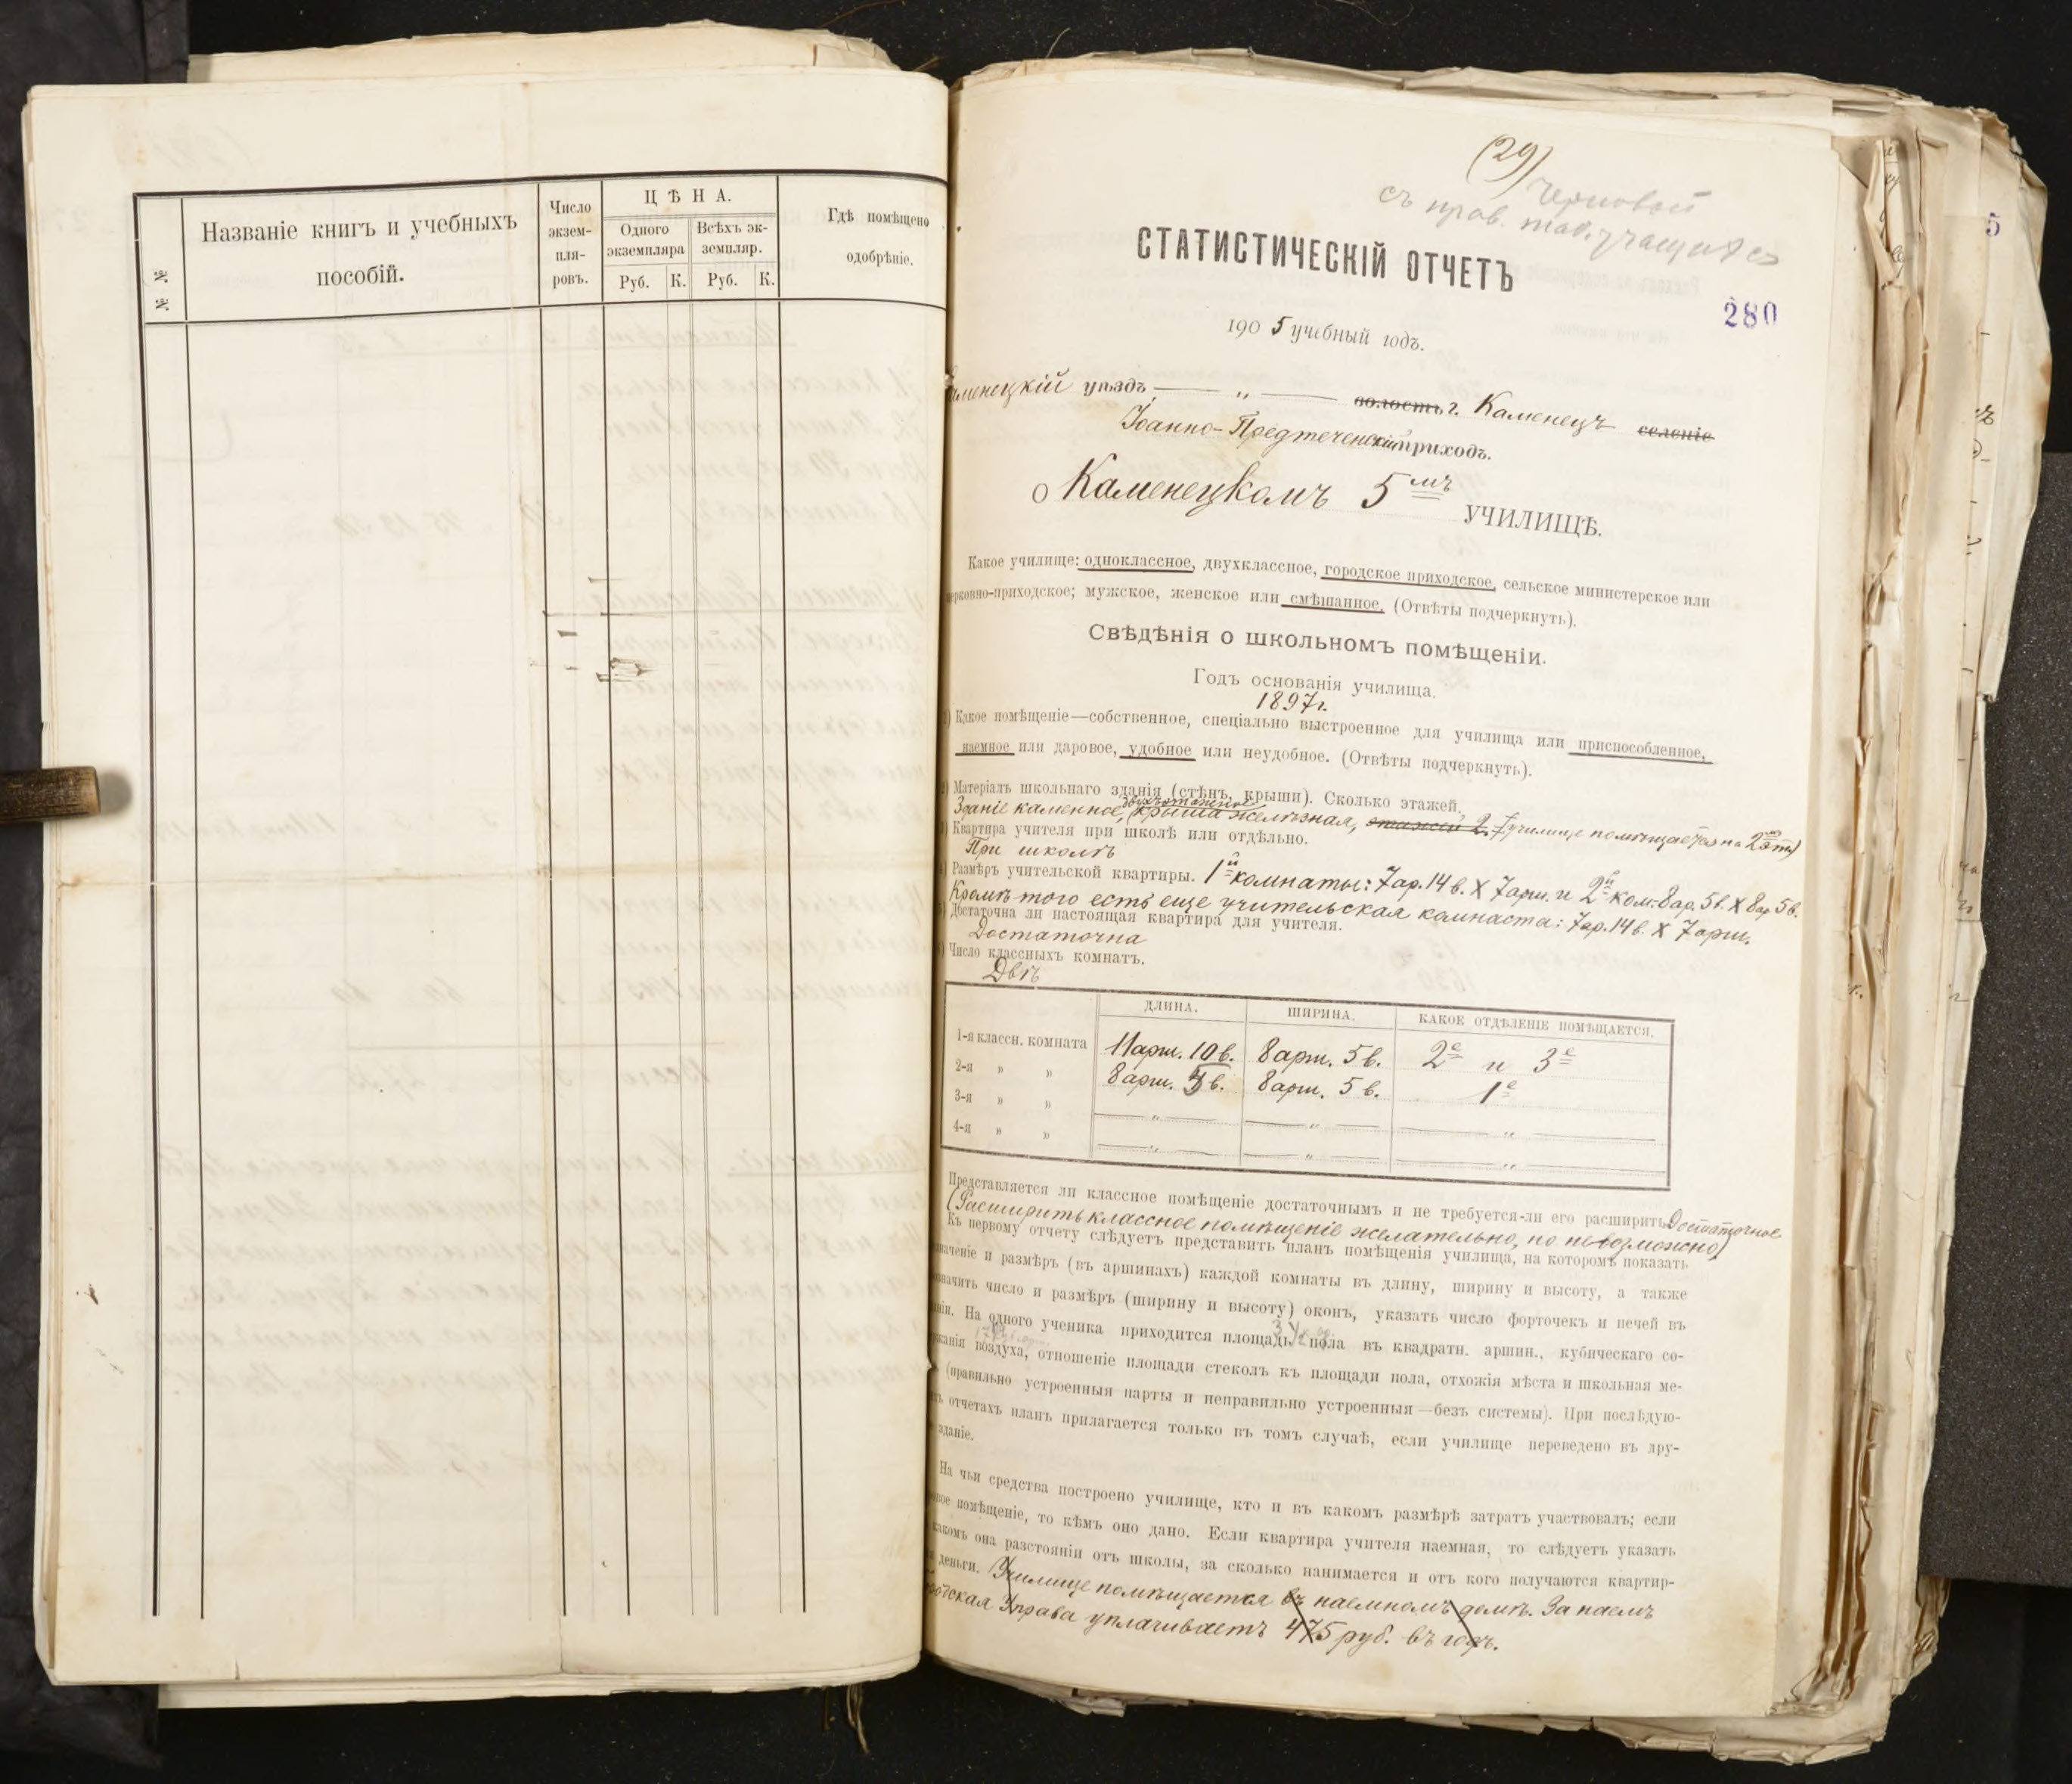 № №
Названіе книгъ и учебныхъ
пособій.
Число
экзем-
пля-
ровъ.
ЦѢНА.
Одного
экземпляра
Всѣхъ эк-
земпляр.
Руб. К. Руб. К.
Гдѣ помѣщено
одобрѣніе.
(29)
Черновой
съ прав.
280
СТАТИСТИЧЕСКІЙ ОТЧЕТЪ
1905 учебный годъ.
аменецкій уѣздъ — „ — волость г. Каменецъ селеніе
Іоанно-Предтеченскій приходъ.
О Каменецкомъ 5мъ УЧИЛИЩѢ.
Какое училище: одноклассное, двухклассное, городское приходское, сельское министерское или
церковно-приходское; мужское, женское или смѣшанное. (Отвѣты подчеркнуть).
Свѣдѣнія о школьномъ помѣщеніи.
Годъ основанія училища.
1897 г.
1) Какое помѣщеніе—собственное, спеціально выстроенное для училища или приспособленное,
наемное или даровое, удобное или неудобное. (Отвѣты подчеркнуть).
2) Матеріалъ школьнаго зданія (стѣнъ, крыши). Сколько этажей.
двухъэтажное
Зданіе каменное, крыша желѣзная, этажей 2. училище помѣщается на 2мъ эт.)
3) Квартира учителя при школѣ или отдѣльно.
При школѣ
4) Размѣръ учительской квартиры. 1й комнаты: 7 ар. 14 в. X 7 арш. и 2й ком. 8 ар. 5 в. X 8 ар. 5 в.
Кромѣ того есть еще учительская комната: 7 ар. 14 в. X 7 арш.
5) Достаточна ли настоящая квартира для учителя.
Достаточна
6) Число классныхъ комнатъ.
Двѣ
ДЛИНА. ШИРИНА. КАКОЕ ОТДѢЛЕНІЕ ПОМѢЩАЕТСЯ.
1-я классн. комната 11 арш. 10 в. 8 арш. 5 в. 2е и 3е
2-я „ „ 8 арш. в. 8 арш. 5 в. 1е
3-я „ „ — „ — — „ — — „ —
4-я „ „ — „ — — „ — — „ —
Представляется ли классное помѣщеніе достаточнымъ и не требуется-ли его расширить Достаточное
(Расширить классное помѣщеніе желательно, но невозможно)
Къ первому отчету слѣдуетъ представить планъ помѣщенія училища, на которомъ показать
значеніе и размѣръ (въ аршинахъ) каждой комнаты въ длину, ширину и высоту, а также
значить число и размѣръ (ширину и высоту) оконъ, указать число форточекъ и печей въ
аніи. На одного ученика приходится площадь пола въ квадратн. аршин., кубическаго со-
жанія воздуха, отношеніе площади стеколъ къ площади пола, отхожія мѣста и школьная ме-
(правильно устроенныя парты и неправильно устроенныя—безъ системы). При послѣдую-
хъ отчетахъ планъ прилагается только въ томъ случаѣ, если училище переведено въ дру-
зданіе.
На чьи средства построено училище, кто и въ какомъ размѣрѣ затратъ участвовалъ; если
овое помѣщеніе, то кѣмъ оно дано. Если квартира учителя наемная, то слѣдуетъ указать
какомъ она разстояніи отъ школы, за сколько нанимается и отъ кого получаются квартир-
я деньги. Училище помѣщается въ наемномъ домѣ. За наемъ
родская Управа уплачиваетъ 475 руб. въ годъ.
5